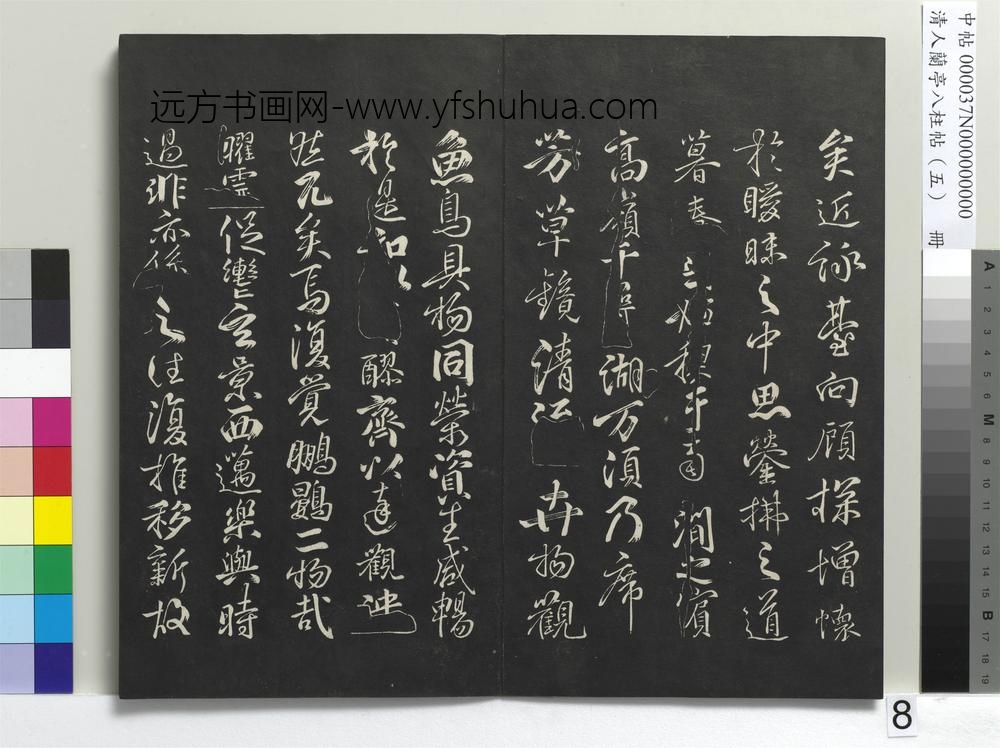 中帖 000037N000000000
清人蘭亭八柱帖(五) 冊
远方书画网-www.yfshuhua.com
矣近詠臺向顧探增懷
於曖昧之中思縈拂之道
暮春禊于南澗之濱
高嶺千尋湖万頃乃席
芳草鏡清卉物觀
魚鳥具物同榮資生咸暢
於是和以醪齊以達觀泱
然兀矣焉復覺鵬鷃二物哉
曜靈促轡玄景西邁樂與時
過悲亦係之往復推移新故
8
A 1 2 3 4 5 6 M 8 9 10 11 12 13 14 15 B 17 18 19